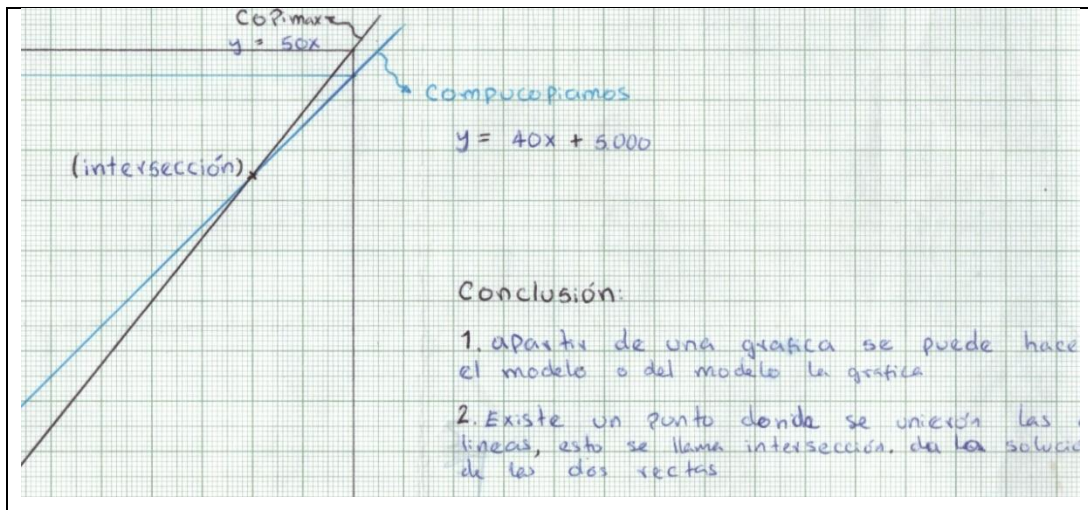 Copimax
y = 50x
Compucopiamos
y = 40x + 5.000
(intersección)
Conclusión:
1. apartir de una grafica se puede hace
el modelo o del modelo la grafica
2. Existe un punto donde se unierón las
lineas, esto se llama intersección. da la solució
de las dos rectas